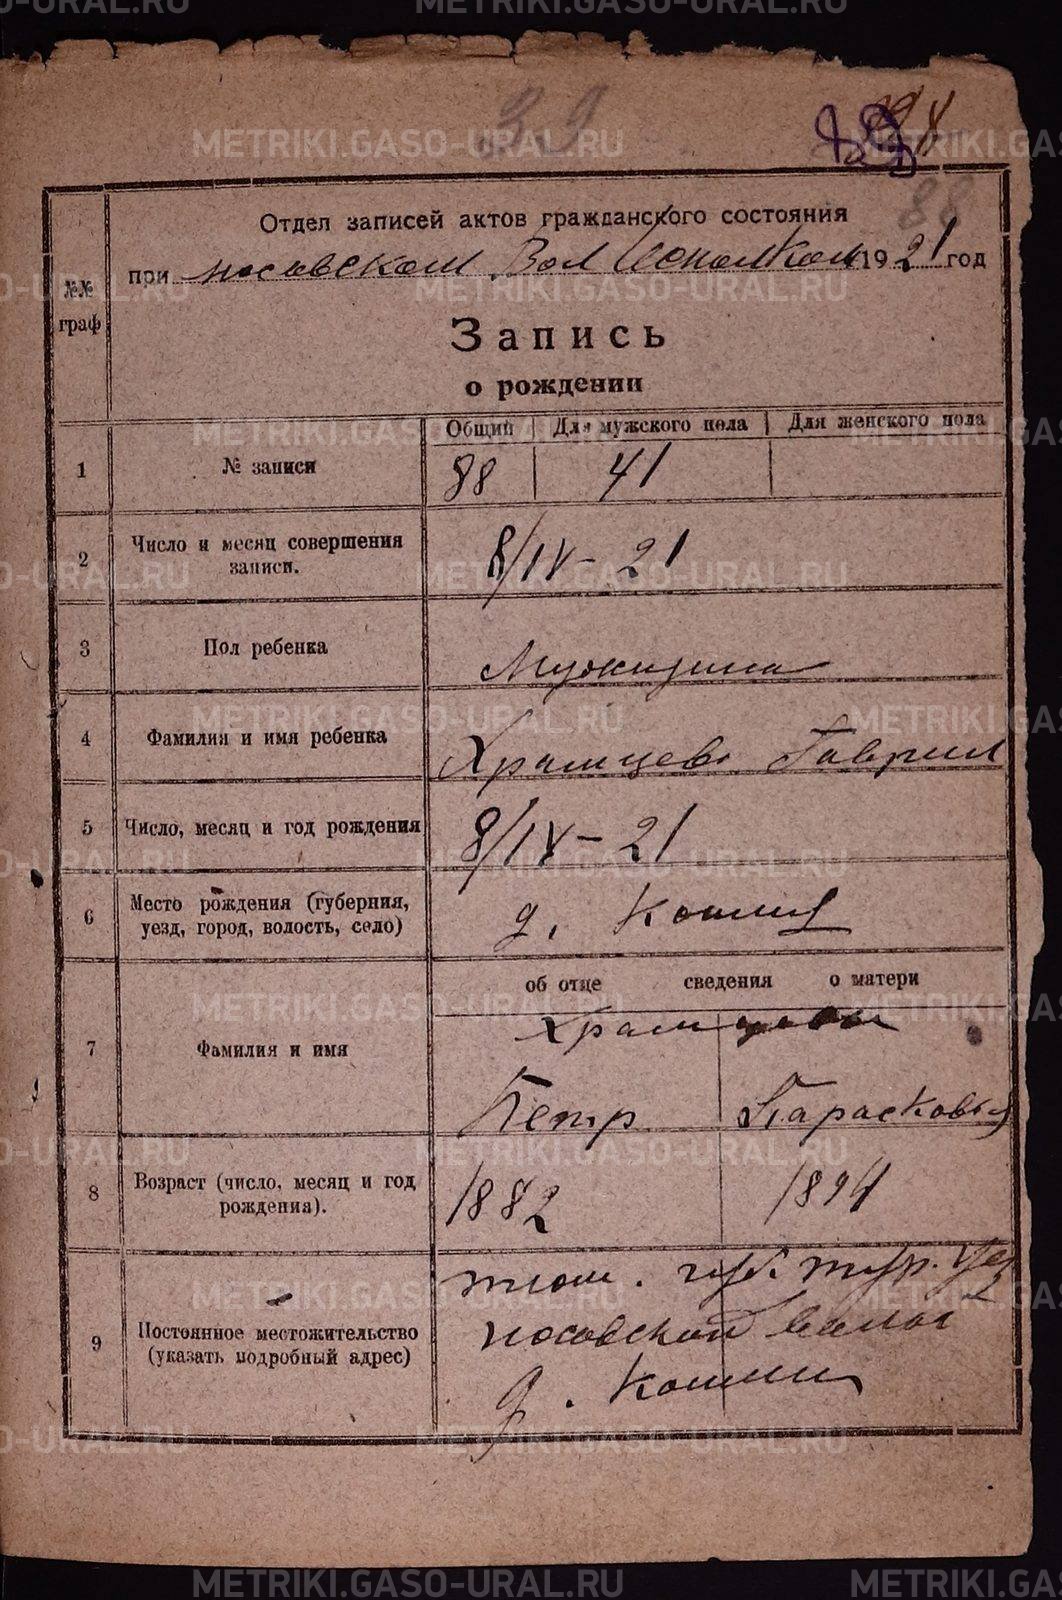 METRIKI.GASO-URAL.RU
39
88
Отдел записей актов гражданского состояния
при носовском Вол Исполком 1921 год
№№ граф
Запись
о рождении
Общий Для мужского пола Для женского пола
1 № записи 88 41
2 Число и месяц совершения
записи. 8/IV-21
3 Пол ребенка Мужщина
4 Фамилия и имя ребенка Храмцев Гаврил
5 Число, месяц и год рождения 8/IV-21
6 Место рождения (губерния,
уезд, город, волость, село) д. Кошия
об отце сведения о матери
7 Фамилия и имя Храмцевы
Петр Парасковья
8 Возраст (число, месяц и год
рождения). 1882 1894
тюм. губ. тур. уез
9 Постоянное местожительство
(указать подробный адрес) носовской валос
д. Кошии